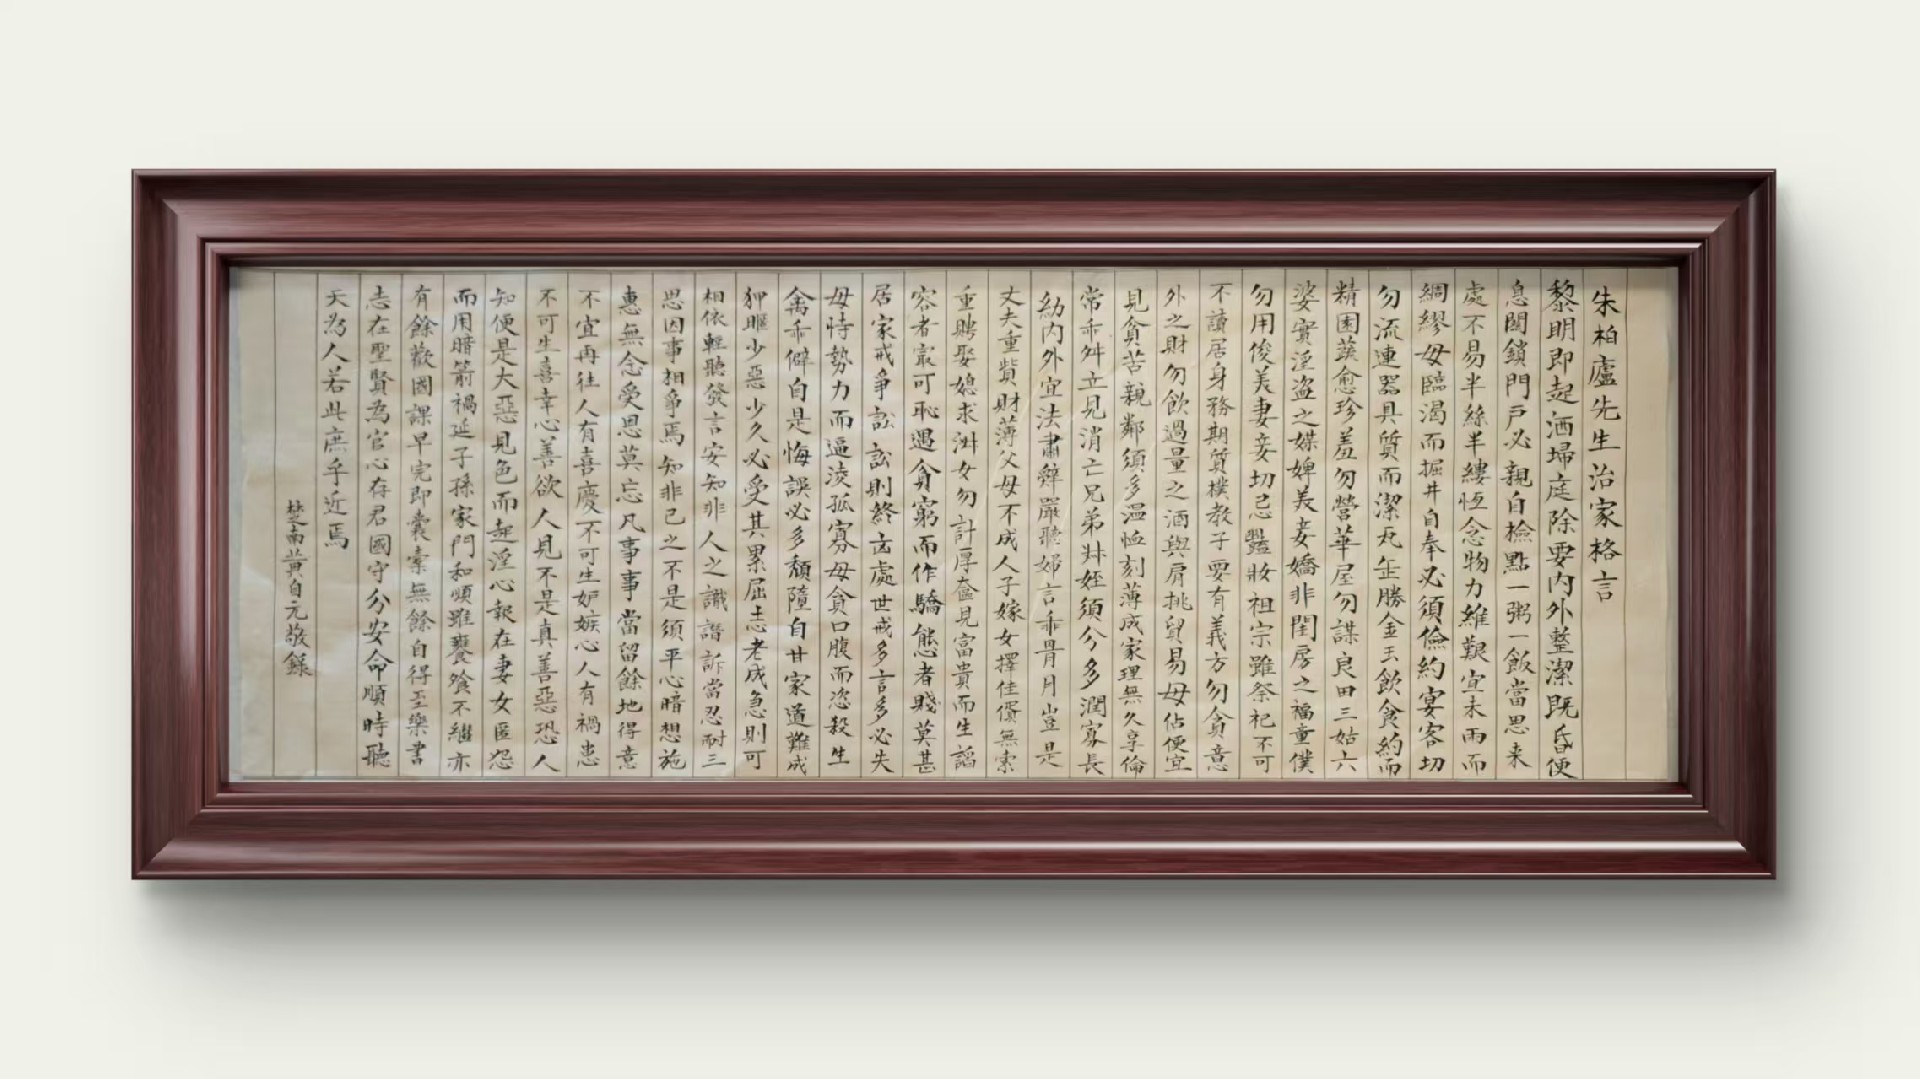 朱柏廬先生治家格言
黎明即起洒埽庭除要内外整潔既昏便
息關鎖門戶必親自檢點一粥一飯當思来
處不易半絲半縷恆念物力維艱宜未雨而
綢繆毋臨渴而掘井自奉必須儉約宴客切
勿流連器具質而潔瓦缶勝金玉飲食約而
精園蔬愈珍羞勿營華屋勿謀良田三姑六
婆實淫盗之媒婢美妾嬌非閨房之福童僕
勿用俊美妻妾切忌豔妝祖宗雖祭祀不可
不讀居身務期質樸教子要有義方勿貪意
外之財勿飲過量之酒與肩挑貿易毋佔便宜
見貧苦親鄰須多温恤刻薄成家理無久享倫
常乖舛立見消亡兄弟姪須分多潤寡長
幼内外宜法肅辭嚴聽婦言乖骨月豈是
丈夫重貲財薄父母不成人子嫁女擇佳壻無索
重聘娶媳求淑女勿計厚奩見富貴而生諂
容者最可恥遇貧窮而作驕態者賤莫甚
居家戒爭訟訟則終凶處世戒多言多必失
毋恃勢力而逼淩孤寡毋貪口腹而恣殺生
禽乖僻自是悔誤必多頹隳自甘家道難成
狎暱少惡少久必受其累屈志老成急則可
相依輕聽發言安知非人之譖訴當忍耐三
思因事相爭焉知非己之不是須平心暗想施
惠無念受恩莫忘凡事事當留餘地得意
不宜再往人有喜慶不可生妒嫉心人有禍患
不可生喜幸心善欲人見不是真善惡恐人
知便是大惡見色而起淫心報在妻女匿怨
而用暗箭禍延子孫家門和順雖饔飧不繼亦
有餘歡國課早完即囊橐無餘自得至樂書
志在聖賢為官心存君國守分安命順時聽
天為人若此庶乎近焉
楚南黄自元敬錄